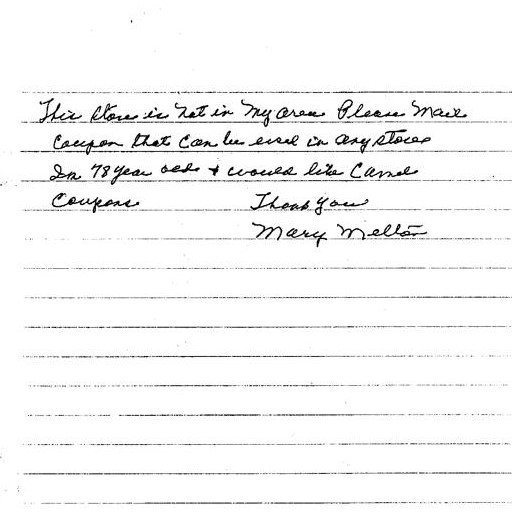 This store is not in my area Please Mail
Coupon that can be used in any store
Im 78 year old & would like Camel
Coupons Thank you
Mary Melton